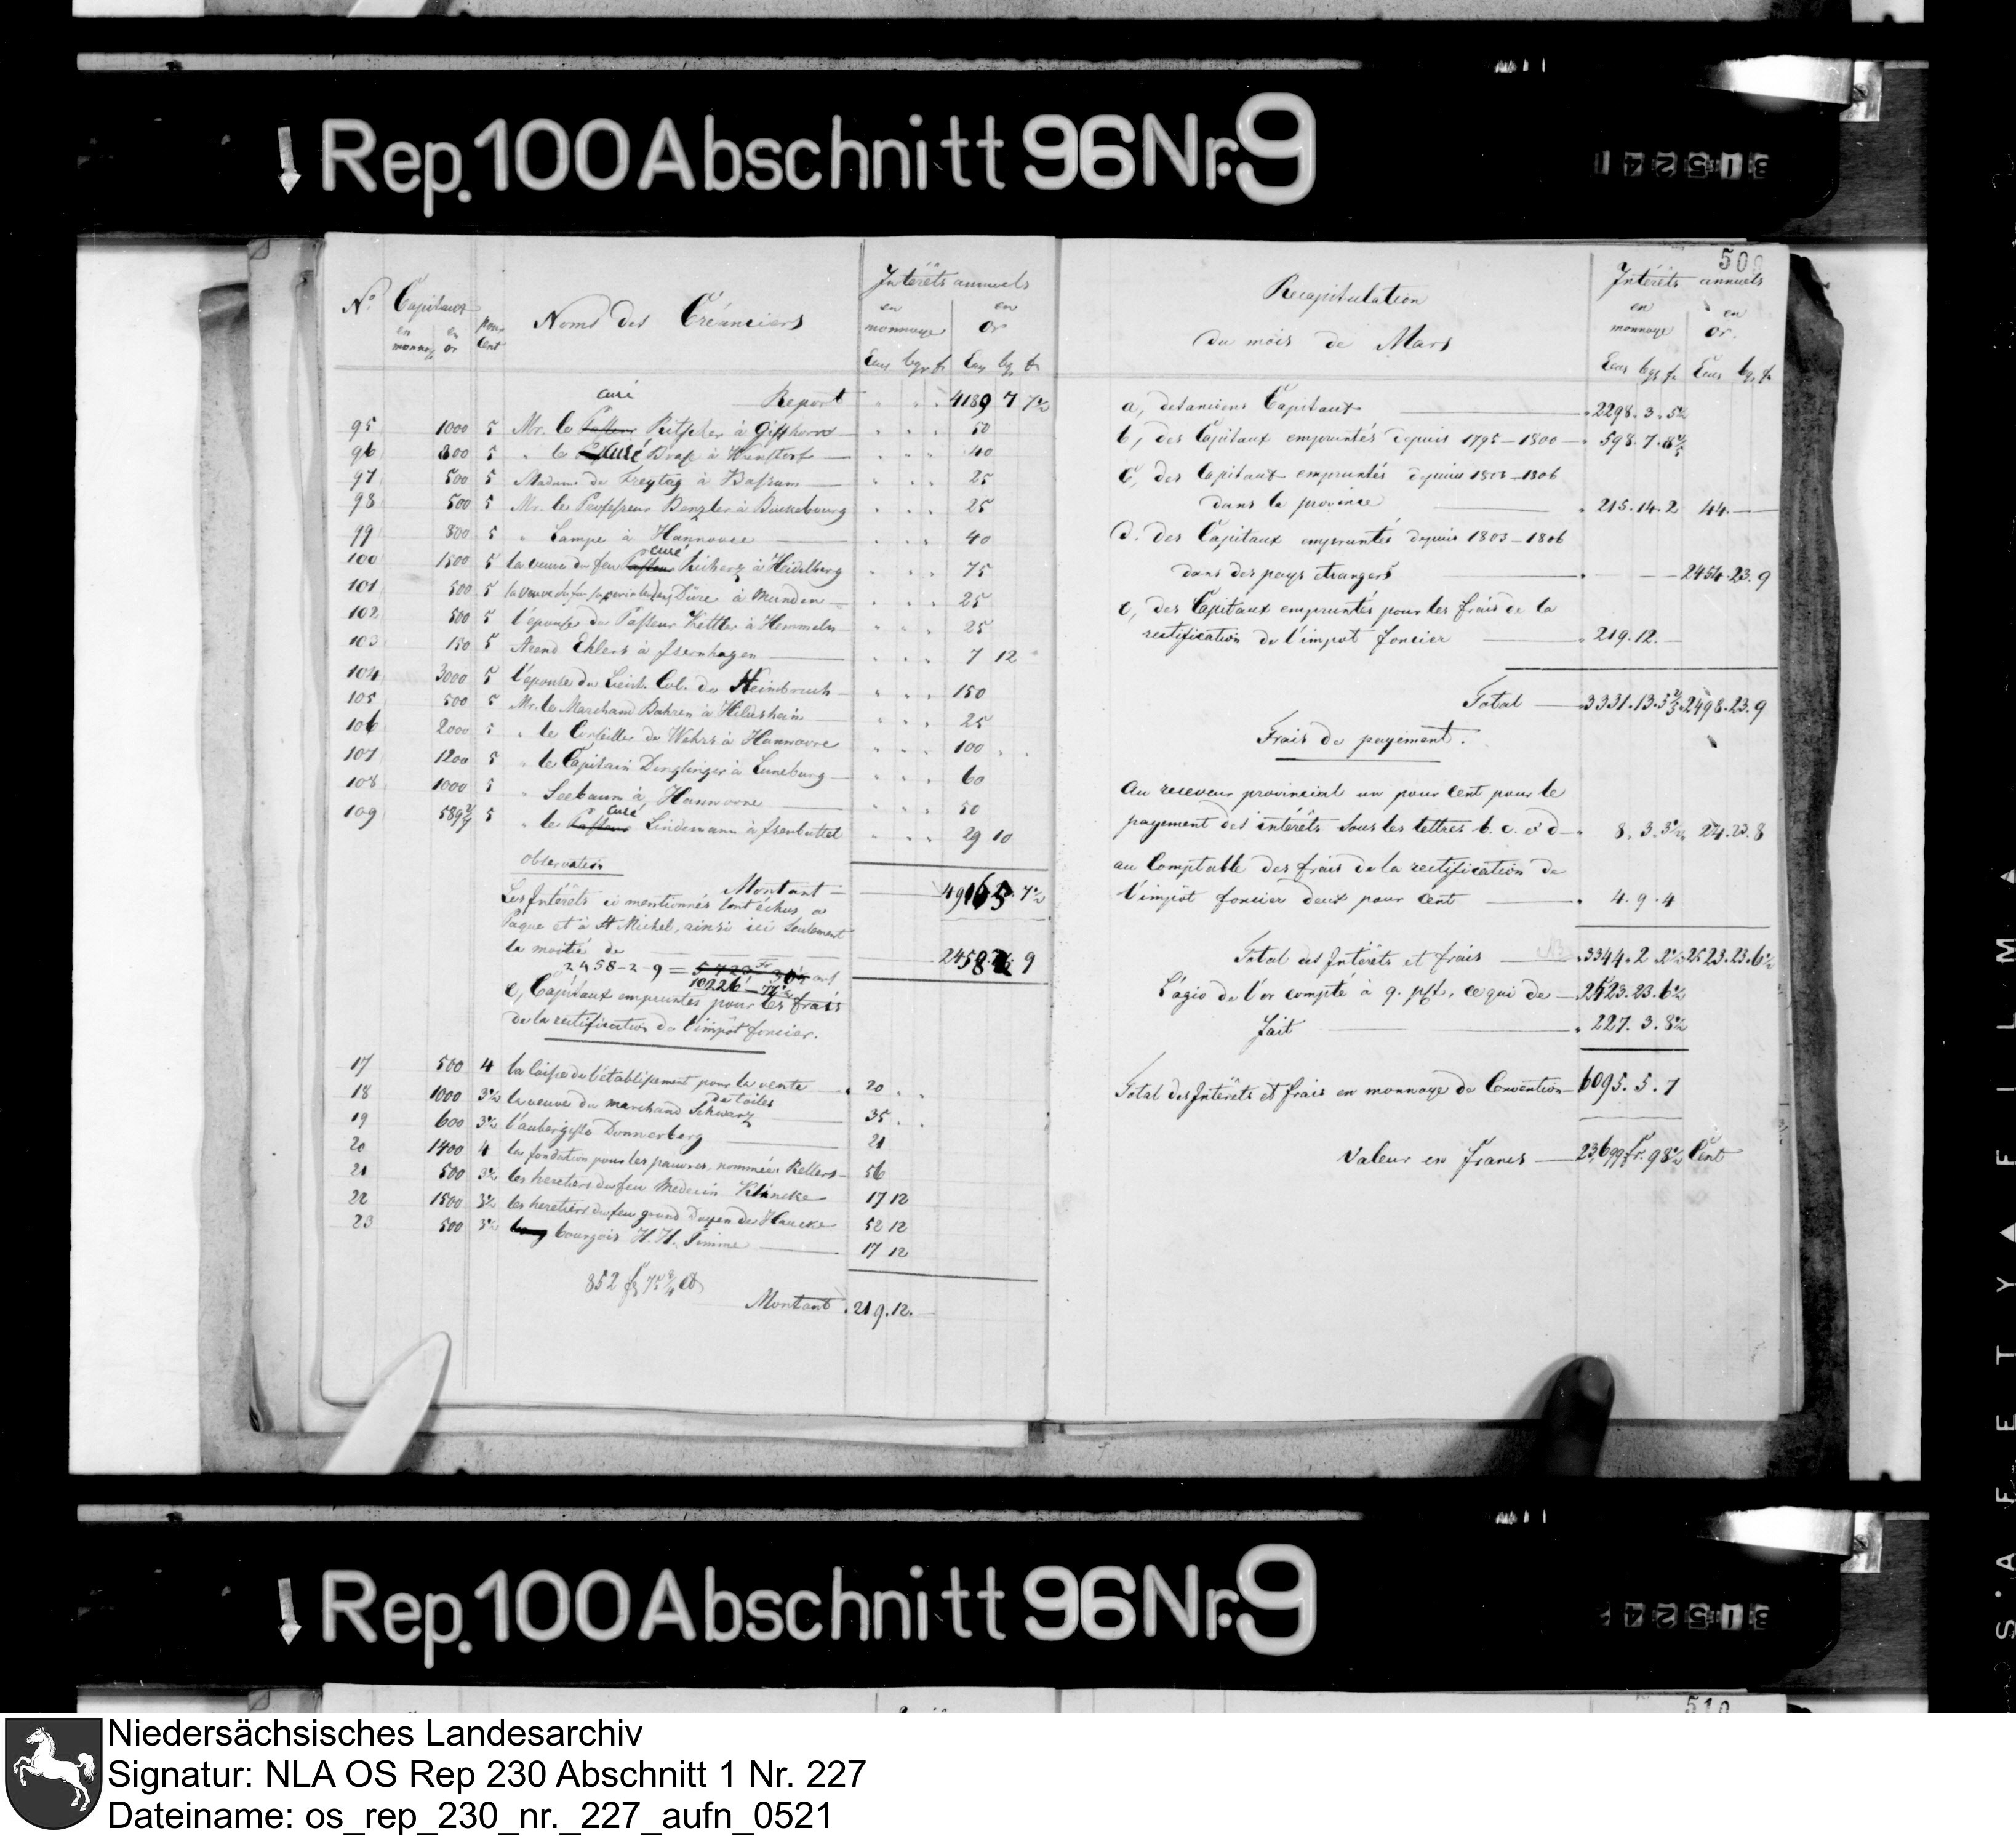 Rep. 100 Abschnitt 96 Nr. 9
No Capitaux pour Cent Noms des Créanciers Intérêts annuels
en monnaye en or en monnaye en or
Ecus bgr fr Ecus bgr fr
Report 4189 7 7½
95 1000 5 Mr. le curé à Gifhorn 50
96 800 5 " le Curé à Wunstorf 40
97 500 5 Madame de Freytag à Bassum 25
98 500 5 Mr. le Professeur Benzler à Buckebourg 25
99 800 5 " Lampe à Hannovre 40
100 1500 5 la veuve du feu curé à Heidelberg 75
101 500 5 la veuve du feu Superintendent Düre à Munden 25
102 500 5 l'épouse du Pasteur Kettler à Hemmeln 25
103 150 5 Arend Ehlers à Isernhagen 7 12
104 3000 5 l'épouse du Lieut. Col. de Heimbruch 150
105 500 5 Mr. le Marchand Bahren à Hildeshein 25
106 2000 5 " le Conseiller de Wehrs à Hannovre 100
107 1200 5 " le Capitain Denglinger à Luneburg 60
108 1000 5 " Seebaum à Hannovre 50
109 589 2/7 5 " le curé Lindemann à Isenbuttel 29 10
observation
Montant 4916 5. 7½
Les Intérêts ci mentionnés sont échus a
Paque et à St Michel, ainsi ici seulement
la moitié de 2458. 2. 9
2458-2-9 =
10226
e, Capitaux empruntés pour les frais
de la rectification de l'impôt foncier.
17 500 4 la caisse de l'établissement pour la vente de toiles 20
18 1000 3½ la veuve du marchand Schwarz 35
19 600 3½ l'aubergiste Donnerberg 21
20 1400 4 la fondation pour les pauvres nommée Rellers 56
21 500 3½ les heretiers du feu Medecin Klincke 17 12
22 1500 3½ les heretiers du feu grand Doyen de Haucke 52 12
23 500 3½ bourgois H. H. Simme 17 12
852 fr 75 ct
Montant 219. 12.
509
Recapitulation
du mois de Mars
Intérêts annuels
en monnaye en or.
Ecus bgr fr Ecus bgr fr
a, des anciens Capitaux 2298. 3. 5½
b, des Capitaux empruntés depuis 1795-1800 598. 7. 8
c, des Capitaux empruntés depuis 1803-1806
dans la province 215. 14. 2 44.
d. des Capitaux empruntés depuis 1803-1806
dans des pays etrangers 2454. 23. 9
e, des Capitaux empruntés pour les frais de la
rectification de l'impot foncier 219. 12.
Total 3331. 13. 3 2498. 23. 9
Frais de payement.
Au receveur provincial un pour Cent pour le
payement des intérêts sous les lettres b. c. et d 8. 3. 3 24. 23. 8
au Comptable des frais de la rectification de
l'impôt foncier deux pour cent 4. 9. 4
Total des Intérêts et frais 3344. 2. 2 2523. 23. 6½
L'agio de l'or compté à 9. pft, ce qui de 2523. 23. 6½
fait 227. 3. 8½
Total des Intérêts et frais en monnaye de Convention 6095. 5. 7
Valeur en francs 23,699 Fr. 98½ Cent
SAFETY FILM
Rep. 100 Abschnitt 96 Nr. 9
510
Niedersächsisches Landesarchiv
Signatur: NLA OS Rep 230 Abschnitt 1 Nr. 227
Dateiname: os_rep_230_nr._227_aufn_0521